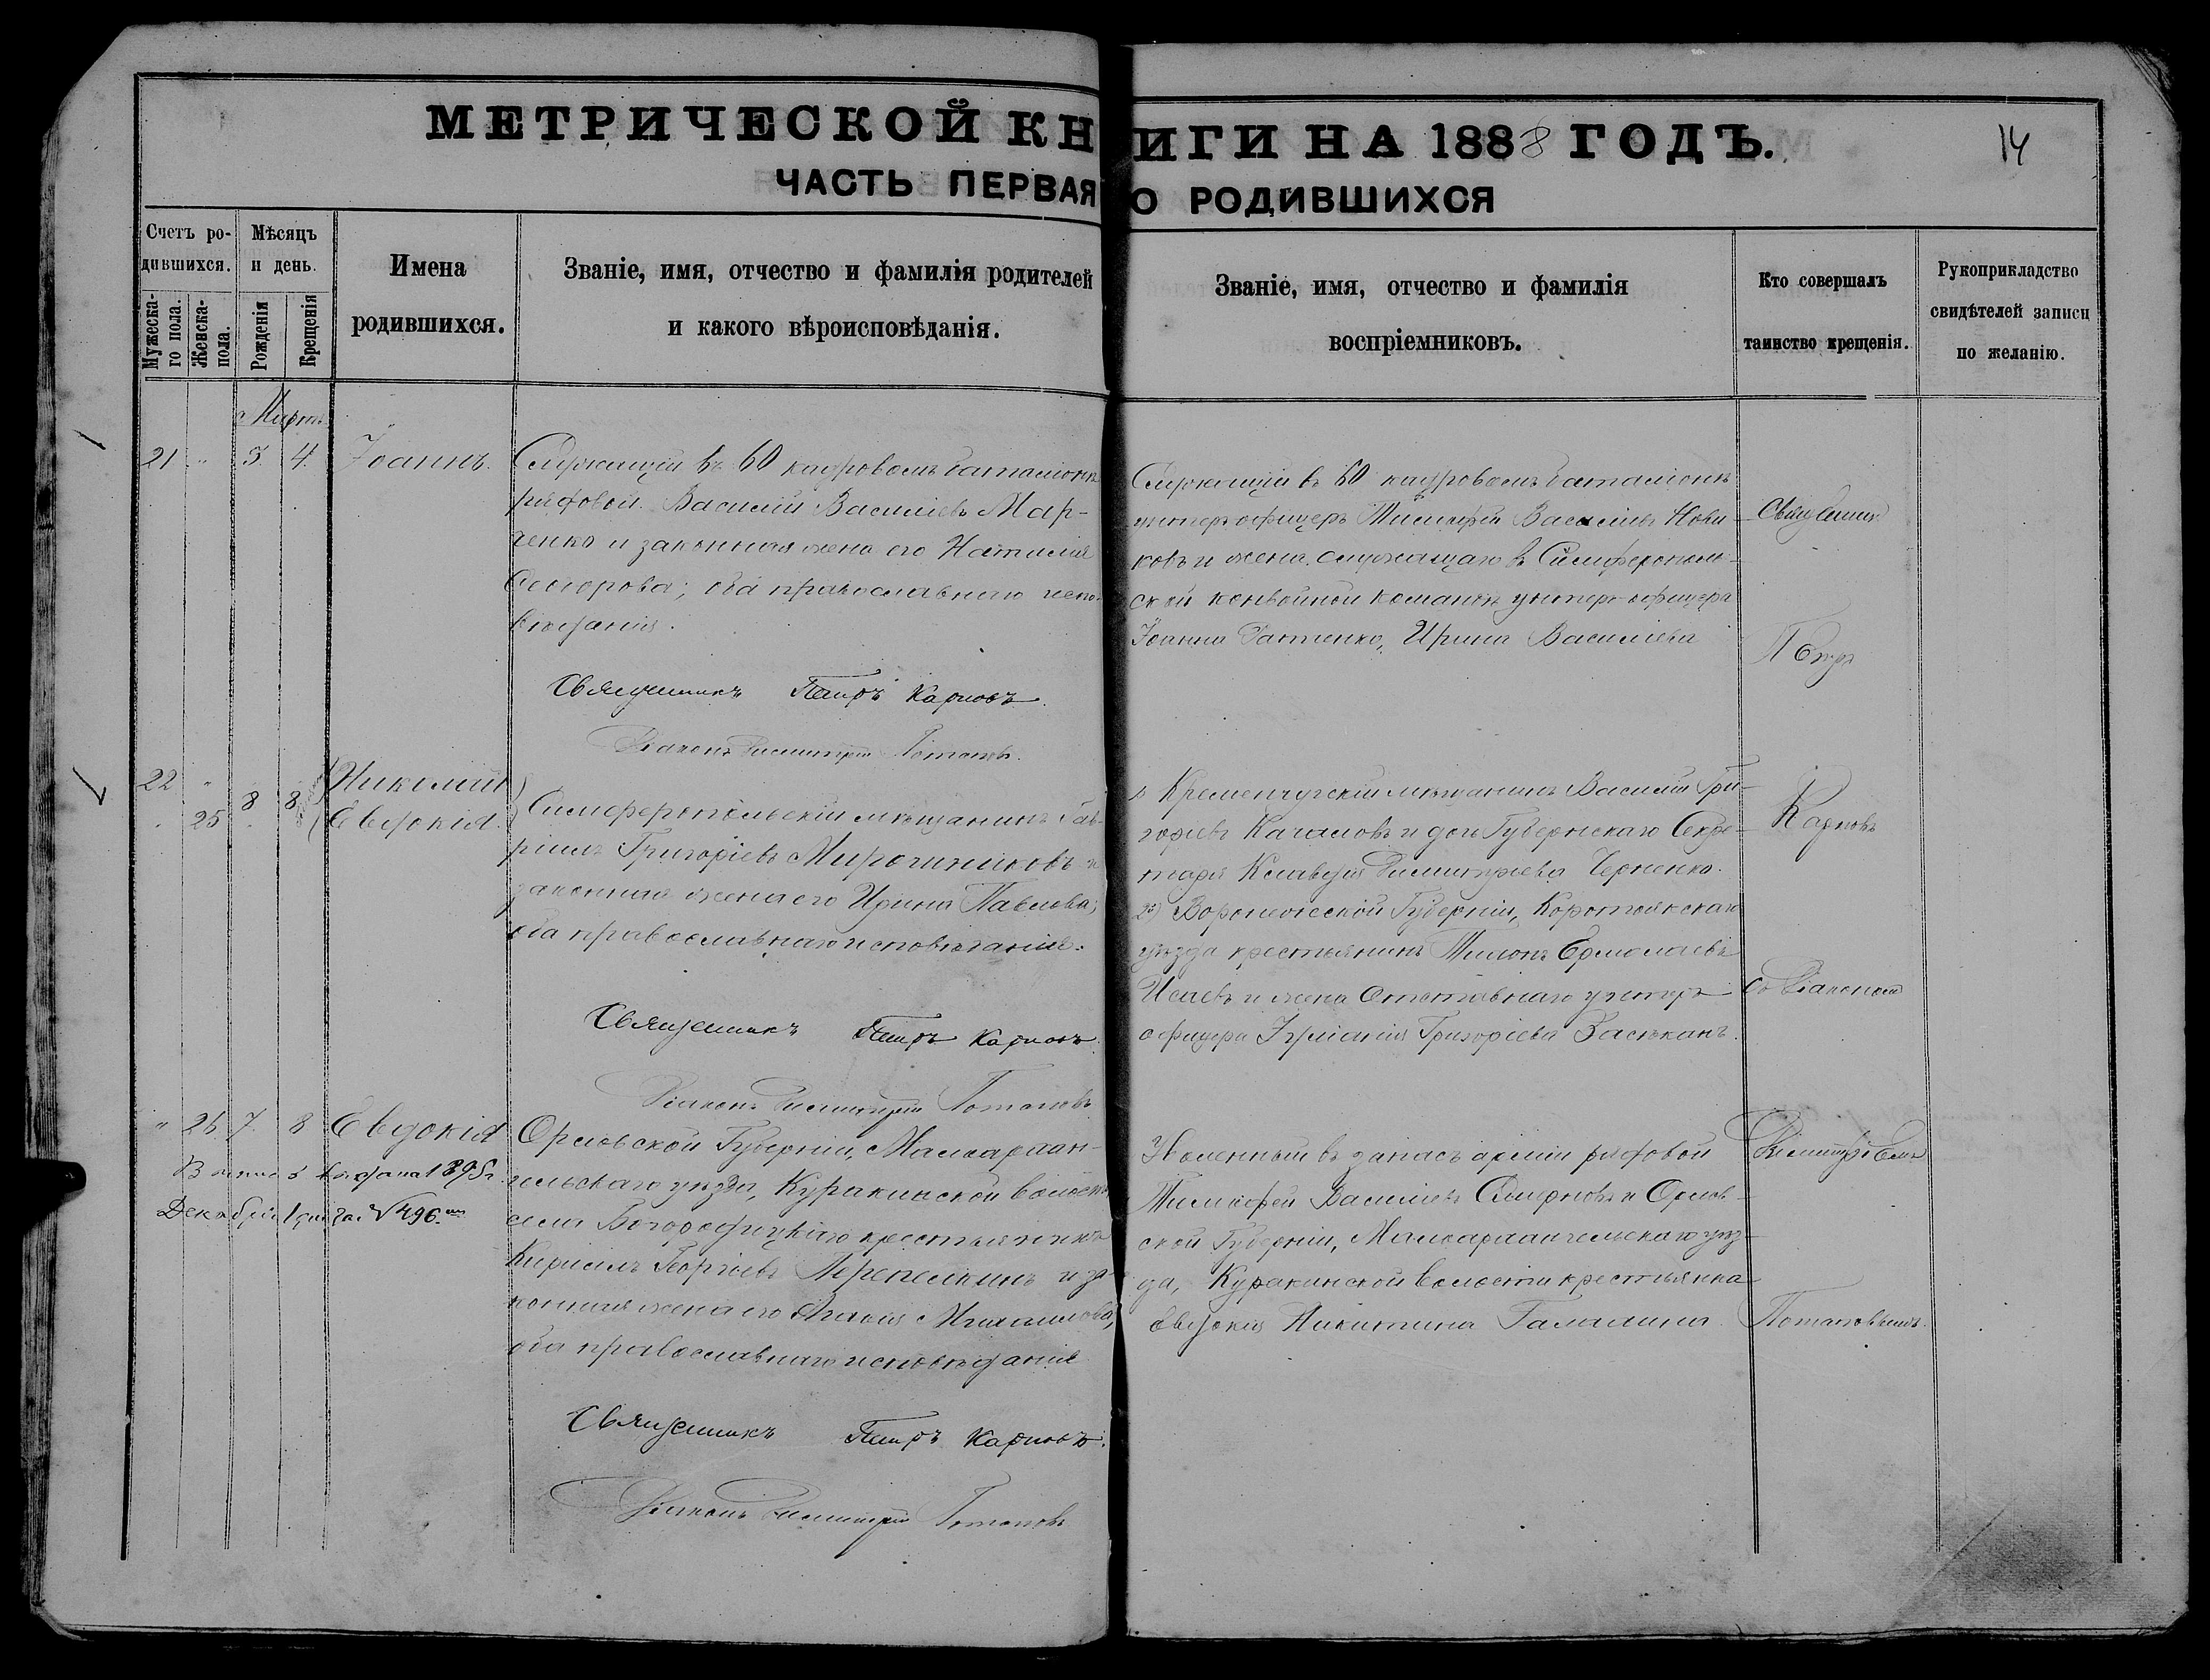 МЕТРИЧЕСКОЙ КНИГИ НА 1888 ГОДЪ.
14
ЧАСТЬ ПЕРВАЯ О РОДИВШИХСЯ
Счетъ родившихся.
Мужескаго пола.
Женска- пола.
Мѣсяцъ и день.
Рожденія
Крещенія
Имена родившихся.
Званіе, имя, отчество и фамилія родителей
и какого вѣроисповѣданія.
Званіе, имя, отчество и фамилія
воспріемниковъ.
Кто совершалъ
таинство крещенія.
Рукоприкладство
свидѣтелей записи
по желанію.
Мартъ
21 " 3. 4. Іоаннъ.
Служащій въ 60 кадровомъ баталіонѣ
рядовой Василій Васильевъ Мар-
ченко и законная жена его Наталія
Ѳеодорова; оба православнаго испо-
вѣданія.
Священникъ Петръ Карповъ.
Діаконъ Димитрій Потаповъ.
Служащій въ 60 кадровомъ баталіонѣ
унтеръ офицеръ Тимофей Васильевъ Нови-
ковъ и жена служащаго въ Симферополь-
ской конвойной командѣ унтеръ-офицера
Іоанна Ирина Васильева
Священникъ
Петръ
22 " 8 8 Николай
" 25 Евдокія.
Симферопольскій мѣщанинъ Гав-
ріилъ Григорьевъ Мирошниковъ и
законная жена его Ирина Павлова;
оба православнаго исповѣданія.
Священникъ Петръ Карповъ.
Діаконъ Димитрій Потаповъ
Кременчугскій мѣщанинъ Василій Гри-
горьевъ Качаловъ и дочь Губернскаго Секре-
таря Клавдія Димитріева Черненко.
2) Воронежской Губерніи, Коротоякскаго
уѣзда крестьянинъ Ермолаевъ
Исаевъ и жена Отставнаго унтеръ
офицера Григоріева
Карповъ
съ Діакономъ
" 26 7. 8 Евдокія
1895 г.
Декабря 1 дня за № 496.
Орловской Губерніи, Малоархан-
гельскаго уѣзда, Куракинской волости
села Богородицкаго крестьянинъ
Кириллъ Георгіевъ Перепелкинъ и за-
конная жена его Михаилова,
оба православнаго исповѣданія
Священникъ Петръ Карповъ.
Діаконъ Димитрій Потаповъ
Уволенный въ запасъ арміи рядовой
Тимофей Васильевъ Смирновъ и Орлов-
ской Губерніи, Малоархангельскаго уѣз-
да, Куракинской волости крестьянка
Евдокія Никитина Галалина
Димитріемъ
Потаповымъ.